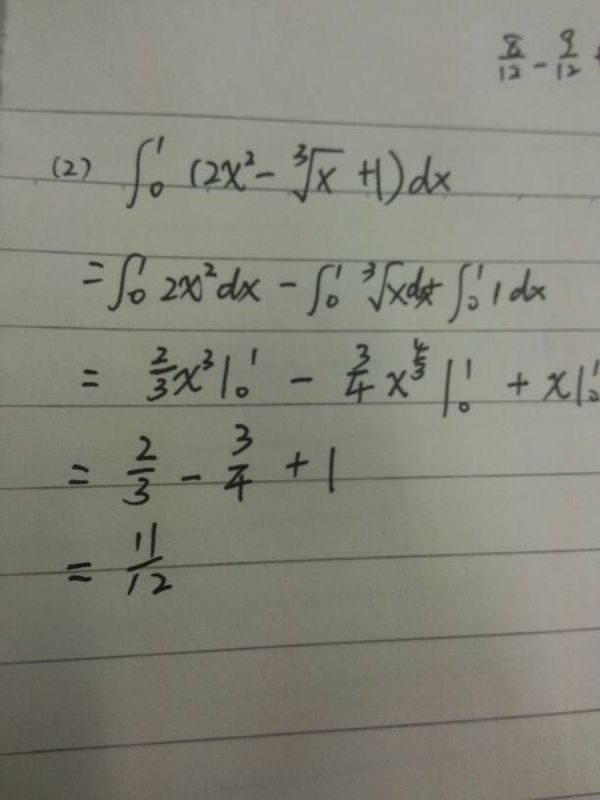 8/12 - 9/12 +
(2) ∫₀¹ (2x² - ∛x + 1) dx
= ∫₀¹ 2x² dx - ∫₀¹ ∛x dx + ∫₀¹ 1 dx
= 2/3 x³ |₀¹ - 3/4 x^(4/3) |₀¹ + x |₀¹
= 2/3 - 3/4 + 1
= 11/12